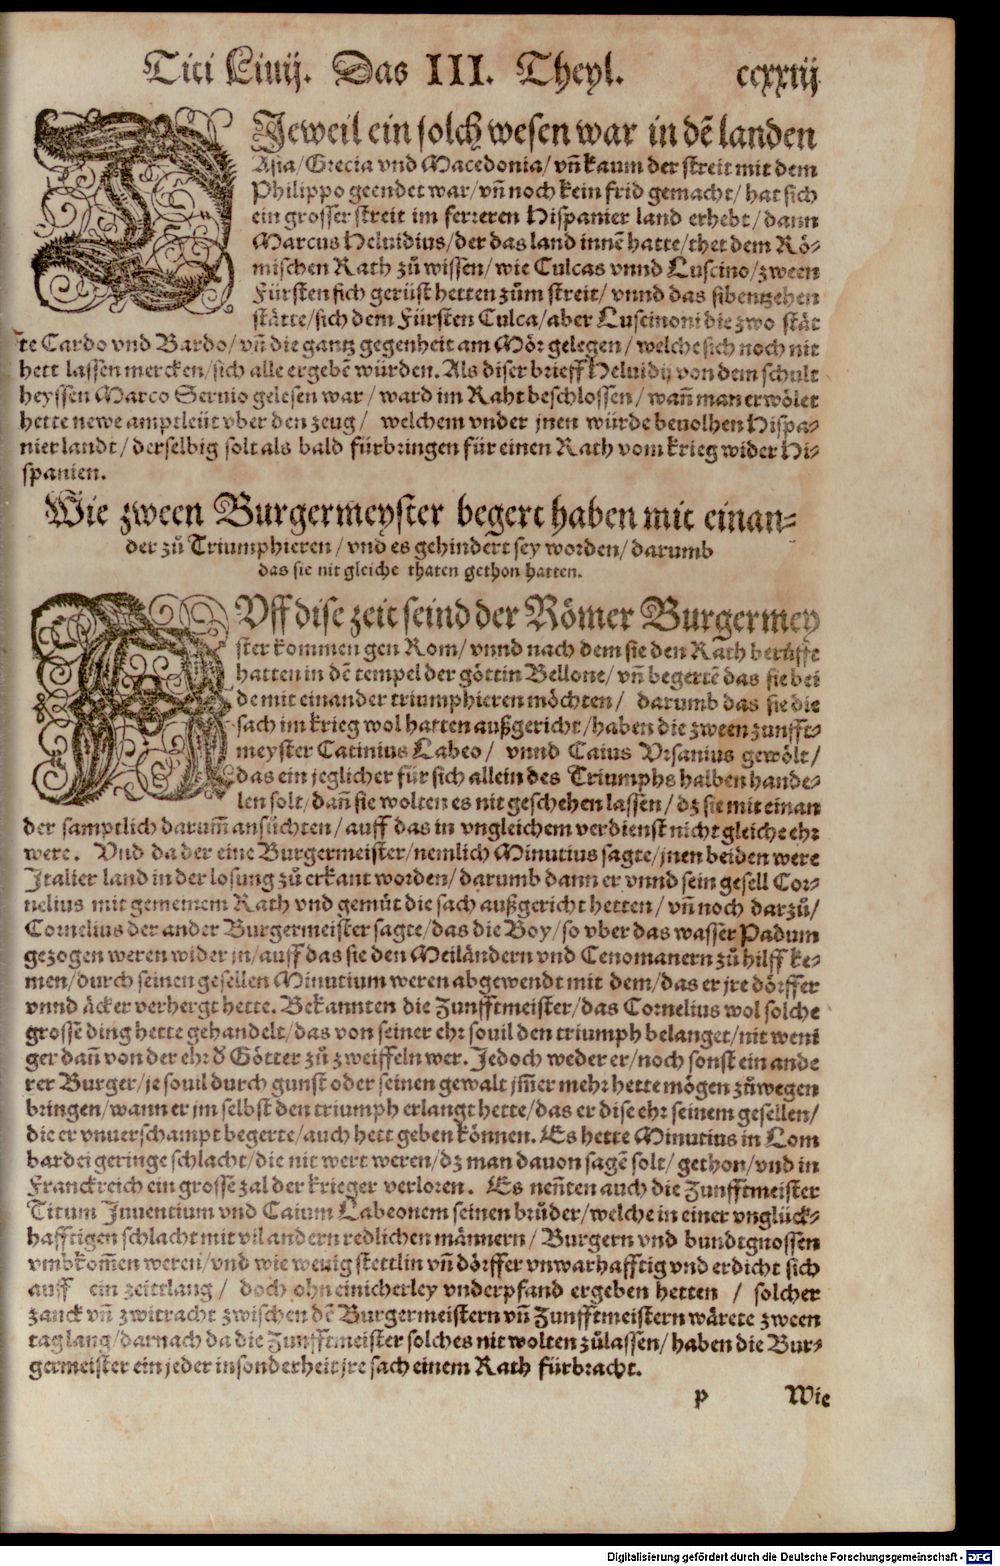 Titi Liuij. Das III. Theyl. ccxxiij
DJeweil ein solch wesen war in dẽ landen
Asia/Grecia vnd Macedonia/vñ kaum der streit mit dem
Philippo geendet war/vñ noch kein frid gemacht/hat sich
ein grosser streit im ferreren Hispanier land erhebt/dann
Marcus Heluidius/der das land innẽ hatte/thet dem Rö-
mischen Rath zů wissen/wie Culcas vnnd Luscino/zween
Fürsten sich gerüst hetten zům streit/vnnd das sibentzehen
stätte/sich dem Fürsten Culca/aber Luscinoni die zwo stät
te Cardo vnd Bardo/vñ die gantz gegenheit am Mör gelegen/welche sich noch nit
hett lassen mercken/sich alle ergebẽ würden. Als diser brieff Heluidij von dem schult
heyssen Marco Seruio gelesen war/ward im Raht beschlossen/wañ man erwölet
hette newe amptleüt vber den zeug/ welchem vnder jnen würde beuolhen Hispa-
nier landt/derselbig solt als bald fürbringen für einen Rath vom krieg wider Hi-
spanien.
Wie zween Burgermeyster begert haben mit einan-
der zů Triumphieren/vnd es gehindert sey worden/darumb
das sie nit gleiche thaten gethon hatten.
AVff dise zeit seind der Römer Burgermey
ster kommen gen Rom/vnnd nach dem sie den Rath berůfft
hatten in dẽ tempel der göttin Bellone/vñ begertẽ das sie bei
de mit einander triumphieren möchten/ darumb das sie die
sach im krieg wol hatten außgericht/haben die zween zunfft-
meyster Catinius Labeo/ vnnd Caius Vrsanius gewölt/
das ein jeglicher für sich allein des Triumphs halben hande-
len solt/dañ sie wolten es nit geschehen lassen/dz sie mit einan
der samptlich darum̃ ansůchten/auff das in vngleichem verdienst nicht gleiche ehr
were. Vnd da der eine Burgermeister/nemlich Minutius sagte/jnen beiden were
Italier land in der losung zů erkant worden/darumb dann er vnnd sein gesell Cor-
nelius mit gemeinem Rath vnd gemüt die sach außgericht hetten/vñ noch darzů/
Cornelius der ander Burgermeister sagte/das die Boy/so vber das wasser Padum
gezogen weren wider jn/auff das sie den Meiländern vnd Cenomanern zů hilff ke-
men/durch seinen gesellen Minutium weren abgewendt mit dem/das er jre dörffer
vnnd äcker verhergt hette. Bekannten die Zunfftmeister/das Cornelius wol solche
grossẽ ding hette gehandelt/das von seiner ehr souil den triumph belanget/nit weni
ger dañ von der ehr d̕ Götter zů zweiffeln wer. Jedoch weder er/noch sonst ein ande
rer Burger/je souil durch gunst oder seinen gewalt jm̃er mehr hette mögen zůwegen
bringen/wann er jm selbst den triumph erlangt hette/das er dise ehr seinem gesellen/
die er vnuerschampt begerte/auch hett geben können. Es hette Minutius in Lom
bardei geringe schlacht/die nit wert weren/dz man dauon sagẽ solt/gethon/vnd in
Franckreich ein grossẽ zal der krieger verloren. Es neñten auch die Zunfftmeister
Titum Juuentium vnd Caium Labeonem seinen brůder/welche in einer vnglück-
hafftigen schlacht mit vil andern redlichen männern/Burgern vnd bundtgnossen
vmbkom̃en weren/vnd wie wenig stettlin vñ dörffer vnwarhafftig vnd erdicht sich
auff ein zeittlang/ doch ohn einicherley vnderpfand ergeben hetten / solcher
zanck vñ zwitracht zwischen dẽ Burgermeistern vñ Zunfftmeistern wärete zween
tag lang/darnach da die Zunfftmeister solches nit wolten zůlassen/haben die Bur-
germeister ein jeder insonderheit jre sach einem Rath fürbracht.
p Wie
Digitalisierung gefördert durch die Deutsche Forschungsgemeinschaft - DFG